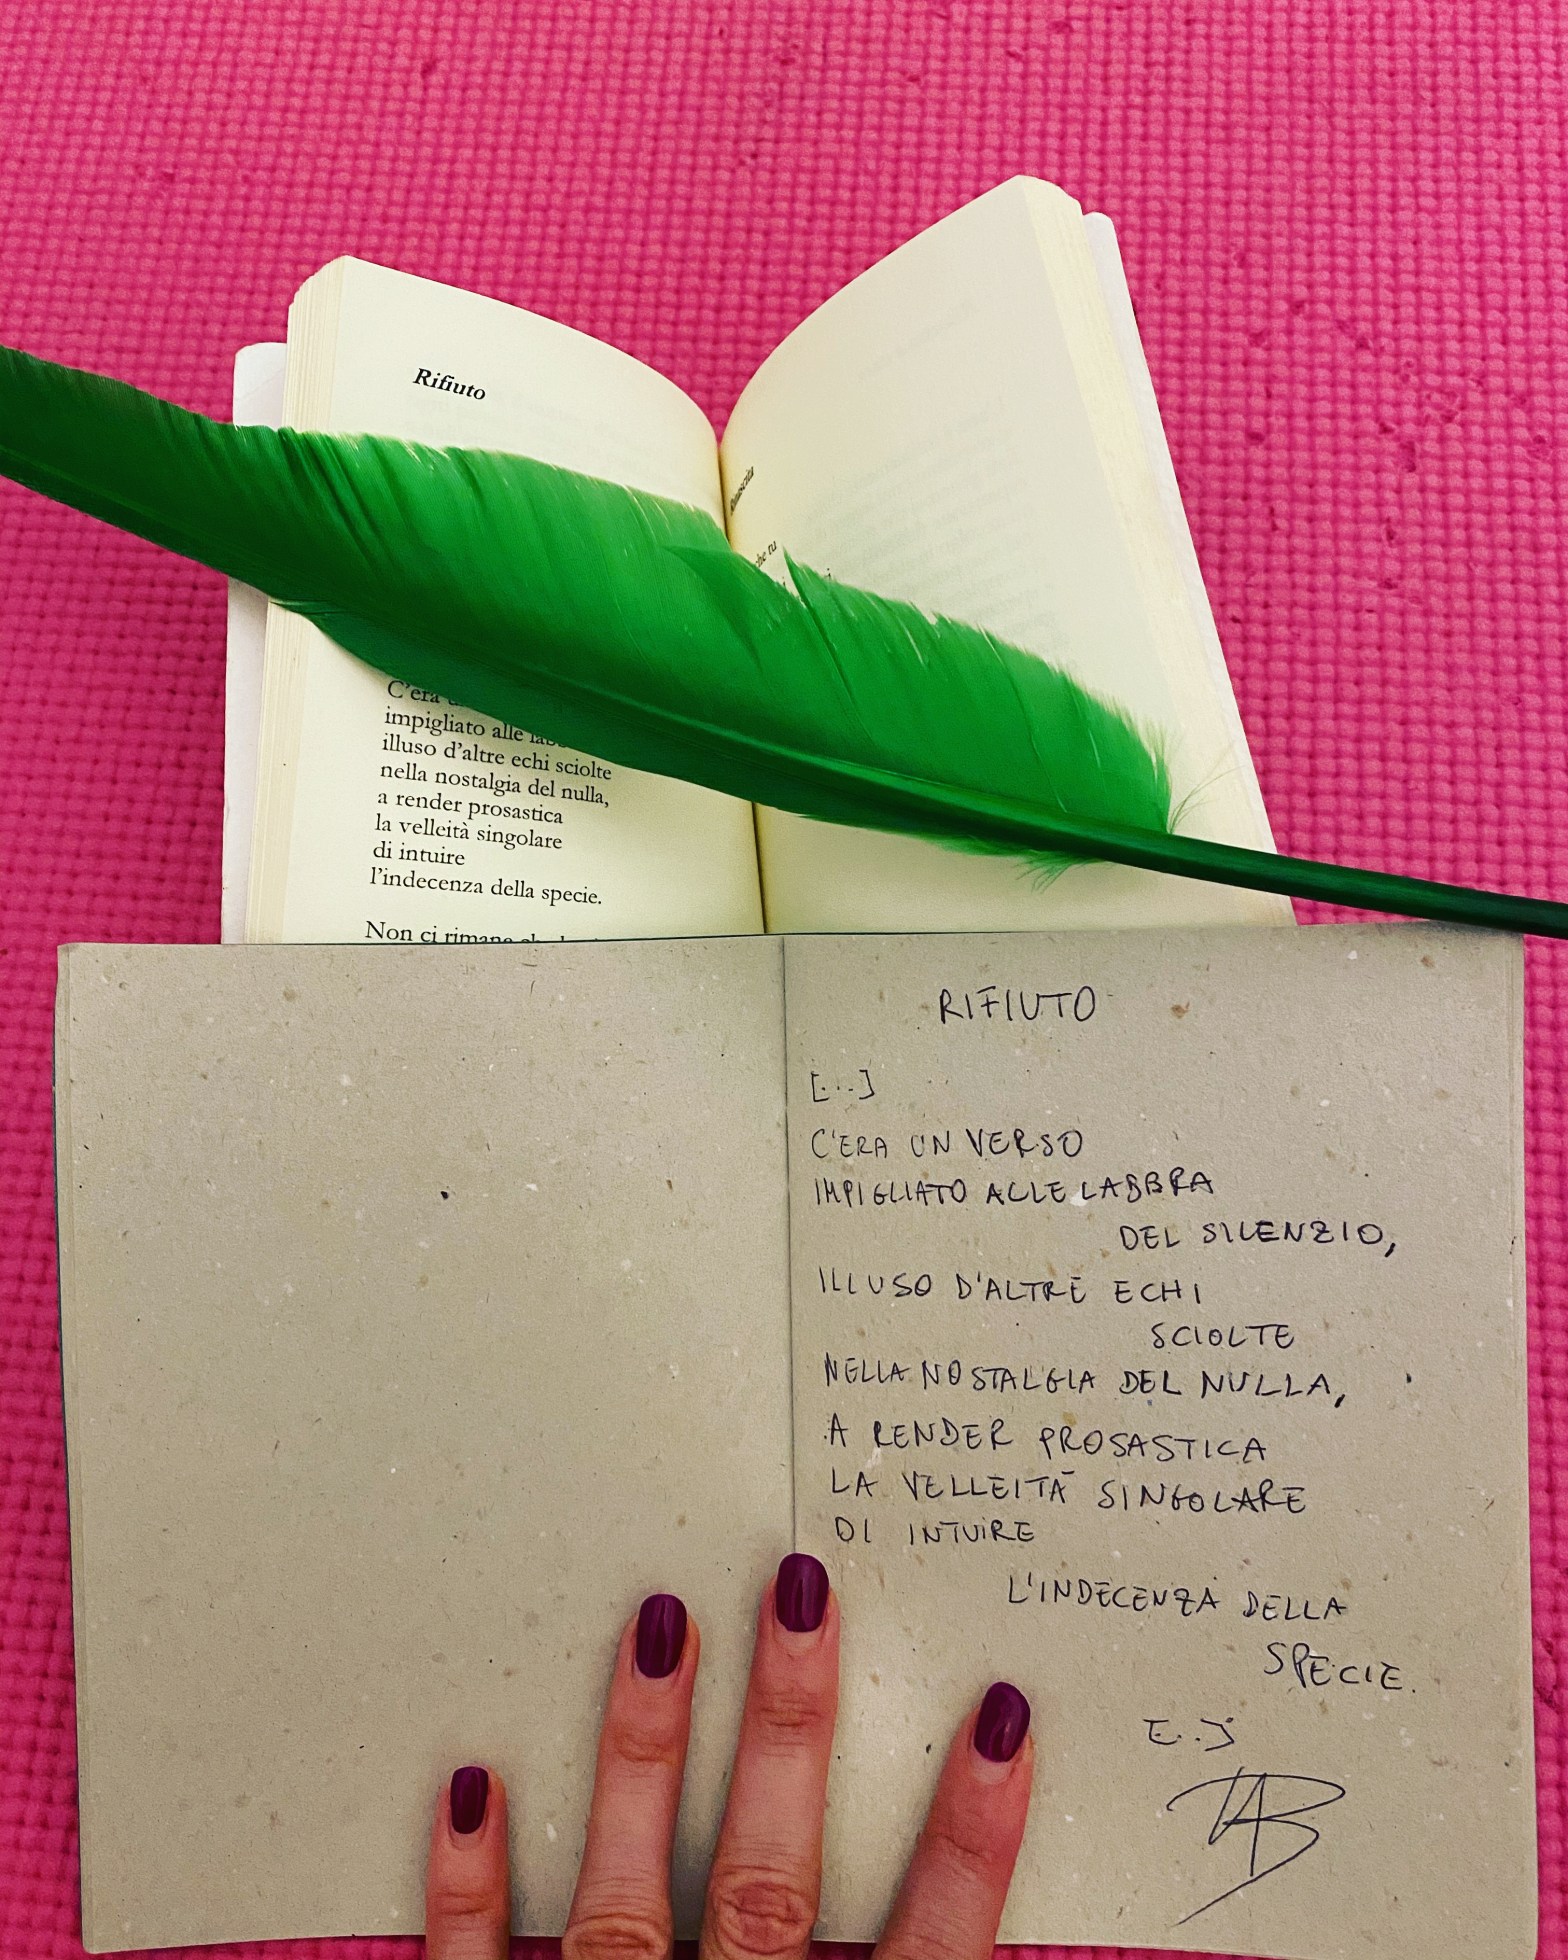 Rifiuto
C'era
impigliato alle
illuso d'altre echi sciolte
nella nostalgia del nulla,
a render prosastica
la velleità singolare
di intuire
l'indecenza della specie.
Non ci rimane
Rinascita
che tu
RIFIUTO
[...]
C'ERA UN VERSO
IMPIGLIATO ALLE LABBRA
DEL SILENZIO,
ILLUSO D'ALTRE ECHI
SCIOLTE
NELLA NOSTALGIA DEL NULLA,
A RENDER PROSASTICA
LA VELLEITÀ SINGOLARE
DI INTUIRE
L'INDECENZA DELLA
SPECIE.
[...]